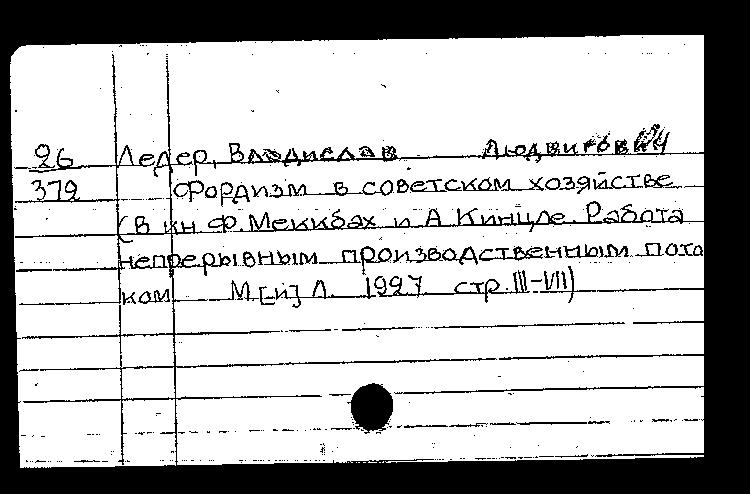 26 Ледер, Владислав Людвигович
379 Фордизм в советском хозяйстве
(В кн Ф. Меккбах и А Кинцле. Работа
непрерывным производственным пото
ком М [-и] Л. 1927 стр. III-VII)